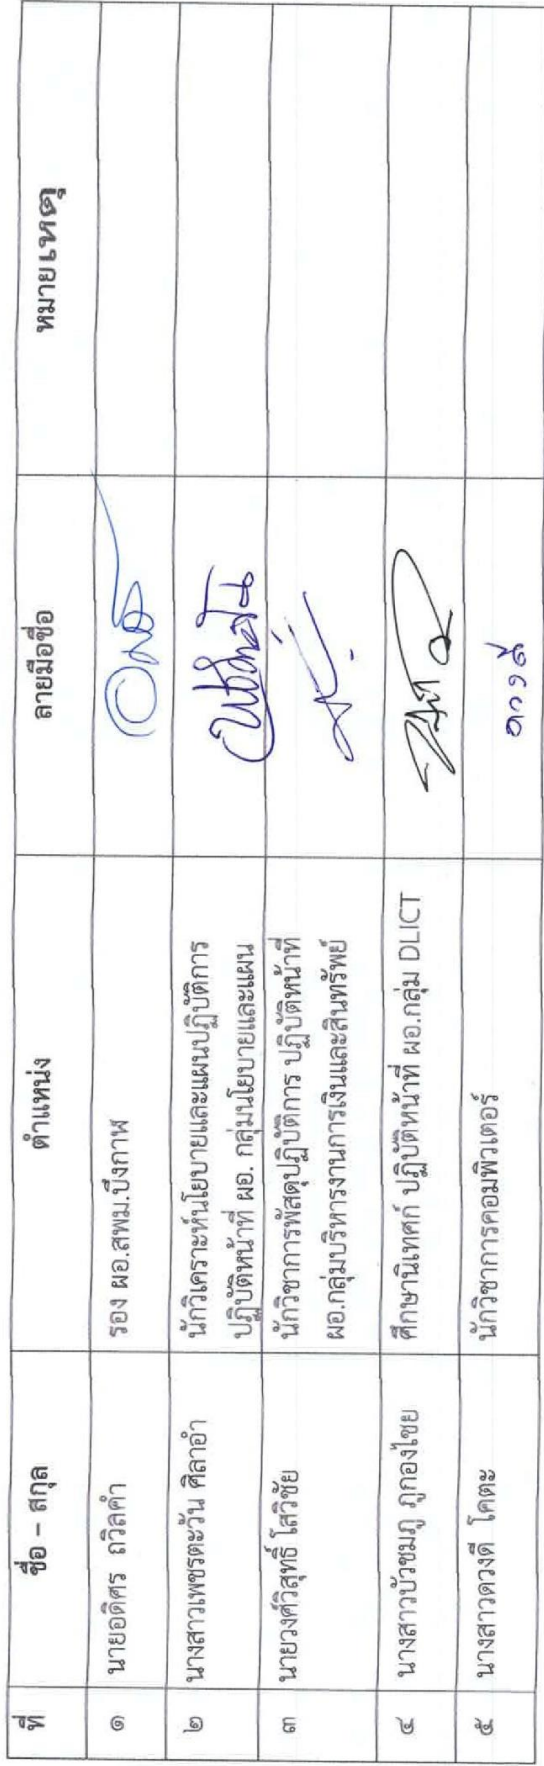 ที่ ชื่อ – สกุล ตำแหน่ง ลายมือชื่อ หมายเหตุ
๑ นายอดิศร ถวิลคำ รอง ผอ.สพม.บึงกาฬ
๒ นางสาวเพชรตะวัน ศิลาอำ นักวิเคราะห์นโยบายและแผนปฏิบัติการ
ปฏิบัติหน้าที่ ผอ. กลุ่มนโยบายและแผน
๓ นายวงศ์วิสุทธิ์ โสวิชัย นักวิชาการพัสดุปฏิบัติการ ปฏิบัติหน้าที่
ผอ.กลุ่มบริหารงานการเงินและสินทรัพย์
๔ นางสาวบัวชมภู ภูกองไชย ศึกษานิเทศก์ ปฏิบัติหน้าที่ ผอ.กลุ่ม DLICT
๕ นางสาวดวงดี โคตะ นักวิชาการคอมพิวเตอร์ ดวงดี